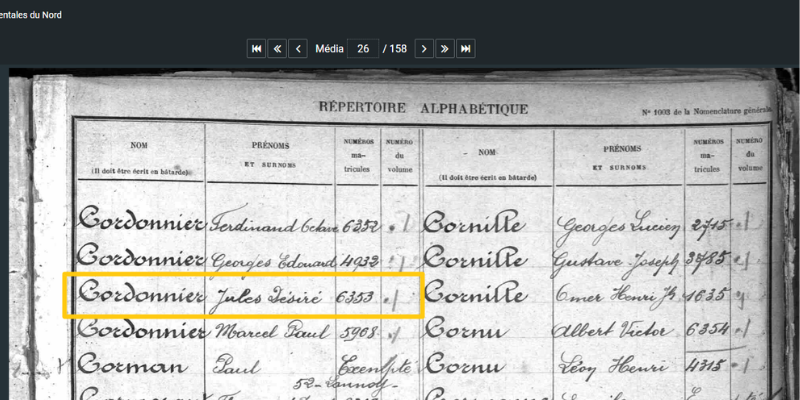 entales du Nord
Média 26 / 158
RÉPERTOIRE ALPHABÉTIQUE
N° 1003 de la Nomenclature générale
NOM
(Il doit être écrit en bâtarde)
PRÉNOMS
ET SURNOMS
NUMÉROS
ma-
tricules
NUMÉRO
du
volume
NOM
(Il doit être écrit en bâtarde)
PRÉNOMS
ET SURNOMS
NUMÉROS
ma-
tricules
NUMÉRO
du
volume
Cordonnier Ferdinand Octave 6352
Cordonnier Georges Edouard 4932
Cordonnier Jules Désiré 6353
Cordonnier Marcel Paul 5908
Corman Paul Exempte
52-Lannoy-
Cornille Georges Lucien 2715
Cornille Gustave Joseph 3785
Cornille Omer Henri Jh 1635
Cornu Albert Victor 6354
Cornu Léon Henri 4315